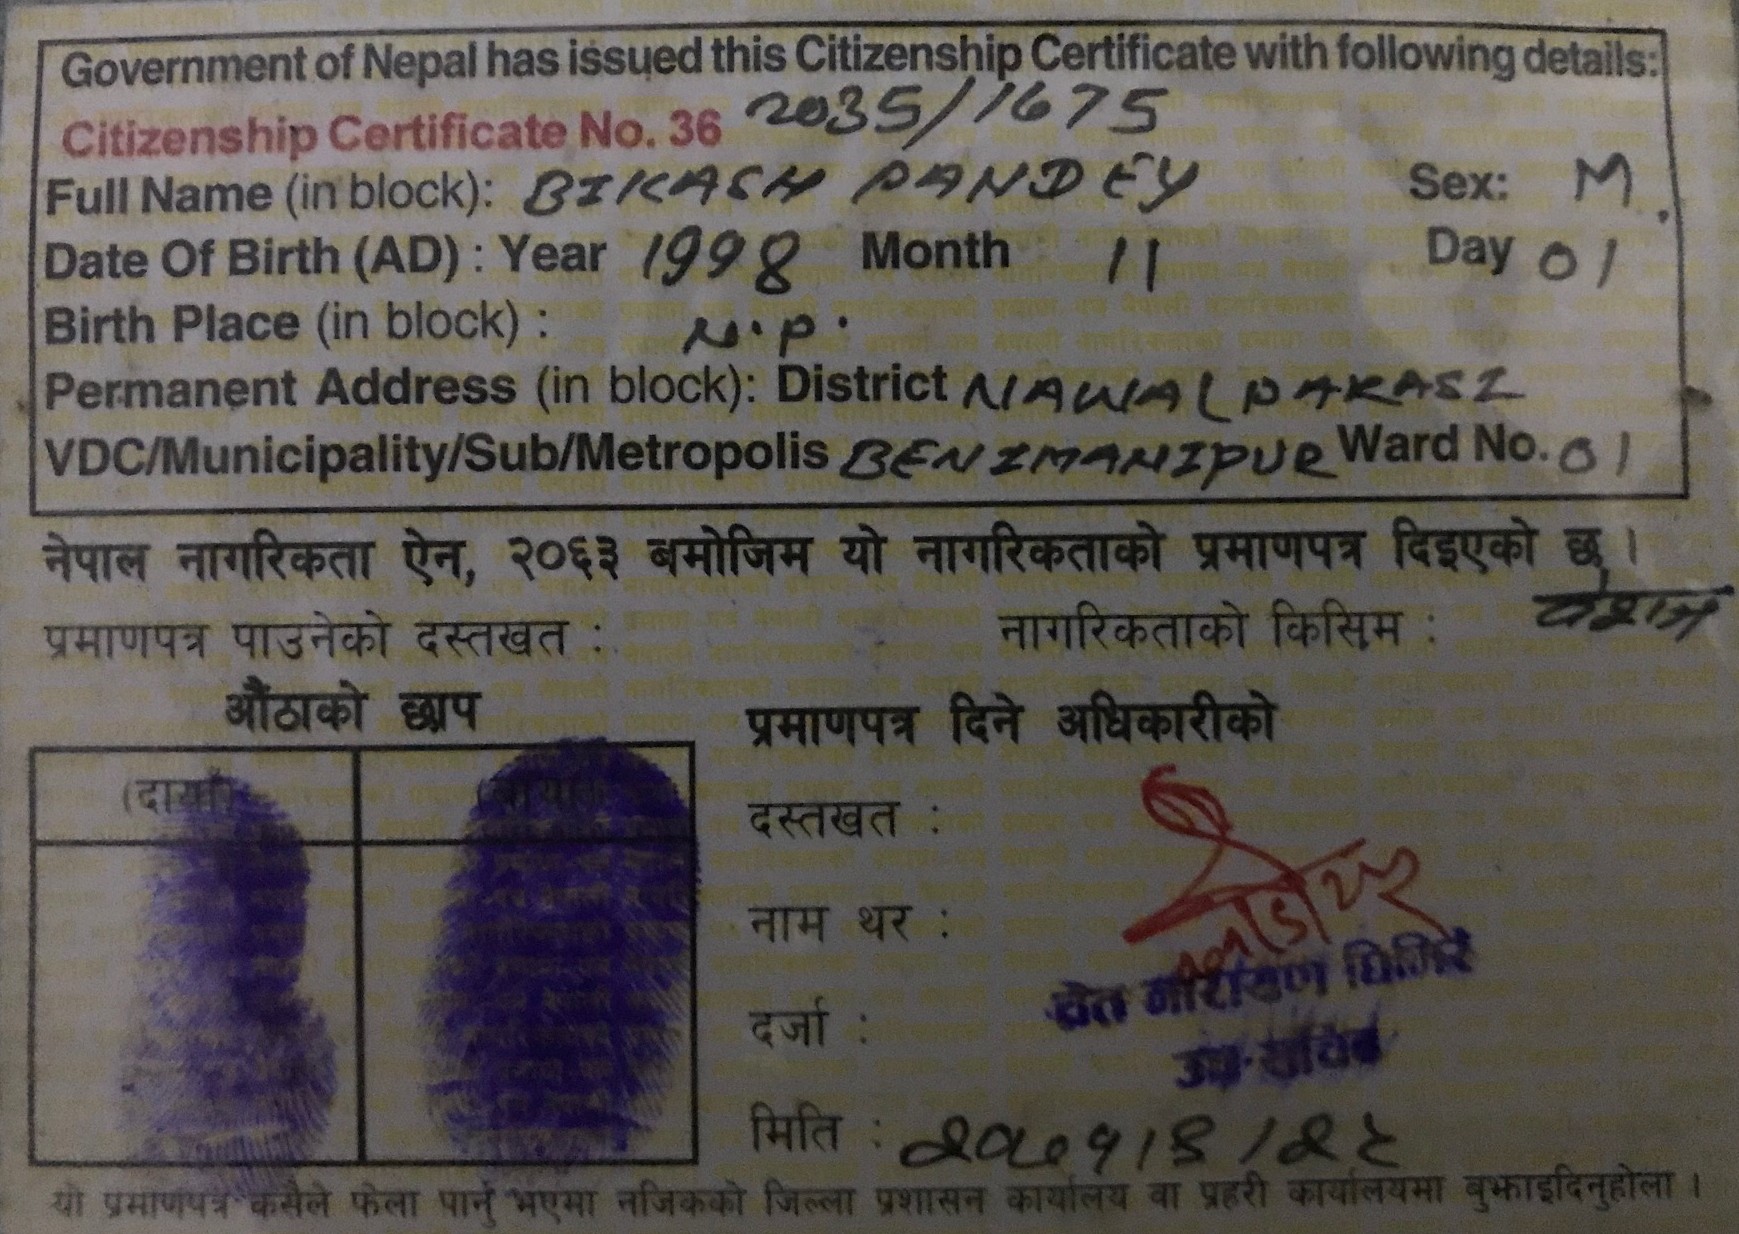 Government of Nepal has issued this Citizenship Certificate with following details:
Citizenship Certificate No. 36 2035/1675
Full Name (in block): BIKASH PANDEY Sex: M.
Date Of Birth (AD) : Year 1998 Month 11 Day 01
Birth Place (in block) : N.P.
Permanent Address (in block): District NAWALPARASI
VDC/Municipality/Sub/Metropolis BENIMANIPUR Ward No. 01
नेपाल नागरिकता ऐन, २०६३ बमोजिम यो नागरिकताको प्रमाणपत्र दिइएको छ ।
प्रमाणपत्र पाउनेको दस्तखत : नागरिकताको किसिम : वंशज
औंठाको छाप प्रमाणपत्र दिने अधिकारीको
(दायाँ) (बायाँ)
दस्तखत :
नाम थर :
नारायण घिमिरे
दर्जा :
उप-सचिव
मिति :
यो प्रमाणपत्र कसैले फेला पार्नु भएमा नजिकको जिल्ला प्रशासन कार्यालय वा प्रहरी कार्यालयमा बुझाइदिनुहोला ।